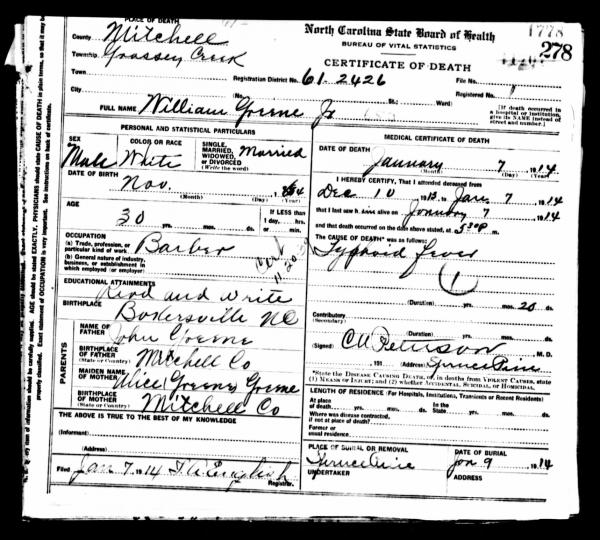 PLACE OF DEATH
County Mitchell
Township Grassy Creek
Town
City
North Carolina State Board of Health
BUREAU OF VITAL STATISTICS
CERTIFICATE OF DEATH
1778
278
Registration District No. 61-2426 File No.
Registered No. 1
(No. St.; Ward)
[If death occurred in a hospital or institution, give its NAME instead of street and number.]
FULL NAME William Greene Jr
PERSONAL AND STATISTICAL PARTICULARS
SEX Male
COLOR OR RACE White
SINGLE, MARRIED, WIDOWED, OR DIVORCED (Write the word) Married
DATE OF BIRTH Nov.
(Month) (Day) (Year)
AGE 30 yrs. mos. ds.
IF LESS than 1 day, hrs. or min.
OCCUPATION
(a) Trade, profession, or particular kind of work Barber
(b) General nature of industry, business, or establishment in which employed (or employer)
EDUCATIONAL ATTAINMENTS Read and write
BIRTHPLACE NC
PARENTS
NAME OF FATHER John Greene
BIRTHPLACE OF FATHER (State or Country) Mitchell Co
MAIDEN NAME OF MOTHER Alice (Greene) Greene
BIRTHPLACE OF MOTHER (State or Country) Mitchell Co
THE ABOVE IS TRUE TO THE BEST OF MY KNOWLEDGE
(Informant)
(Address)
Filed Jan 7, 1914 Registrar.
MEDICAL CERTIFICATE OF DEATH
DATE OF DEATH January 7 1914
(Month) (Day) (Year)
I HEREBY CERTIFY, That I attended deceased from
Dec 10 1913, to Jan 7 1914
that I last saw h im alive on January 7 1914
and that death occurred on the date above stated, at 5 30 P m.
The CAUSE OF DEATH* was as follows:
Typhoid fever
1
(Duration) yrs. mos. 20 ds.
Contributory (Secondary)
(Duration) yrs. mos. ds.
(Signed) M. D.
191 (Address) Spruce Pine
*State the DISEASE CAUSING DEATH, or, in deaths from VIOLENT CAUSES, state (1) MEANS OF INJURY; and (2) whether ACCIDENTAL, SUICIDAL, or HOMICIDAL.
LENGTH OF RESIDENCE (For Hospitals, Institutions, Transients or Recent Residents)
At place of death yrs. mos. ds. In the State yrs. mos. ds.
Where was disease contracted, if not at place of death?
Former or usual residence
PLACE OF BURIAL OR REMOVAL Spruce Pine
DATE OF BURIAL Jan 9 1914
UNDERTAKER
ADDRESS